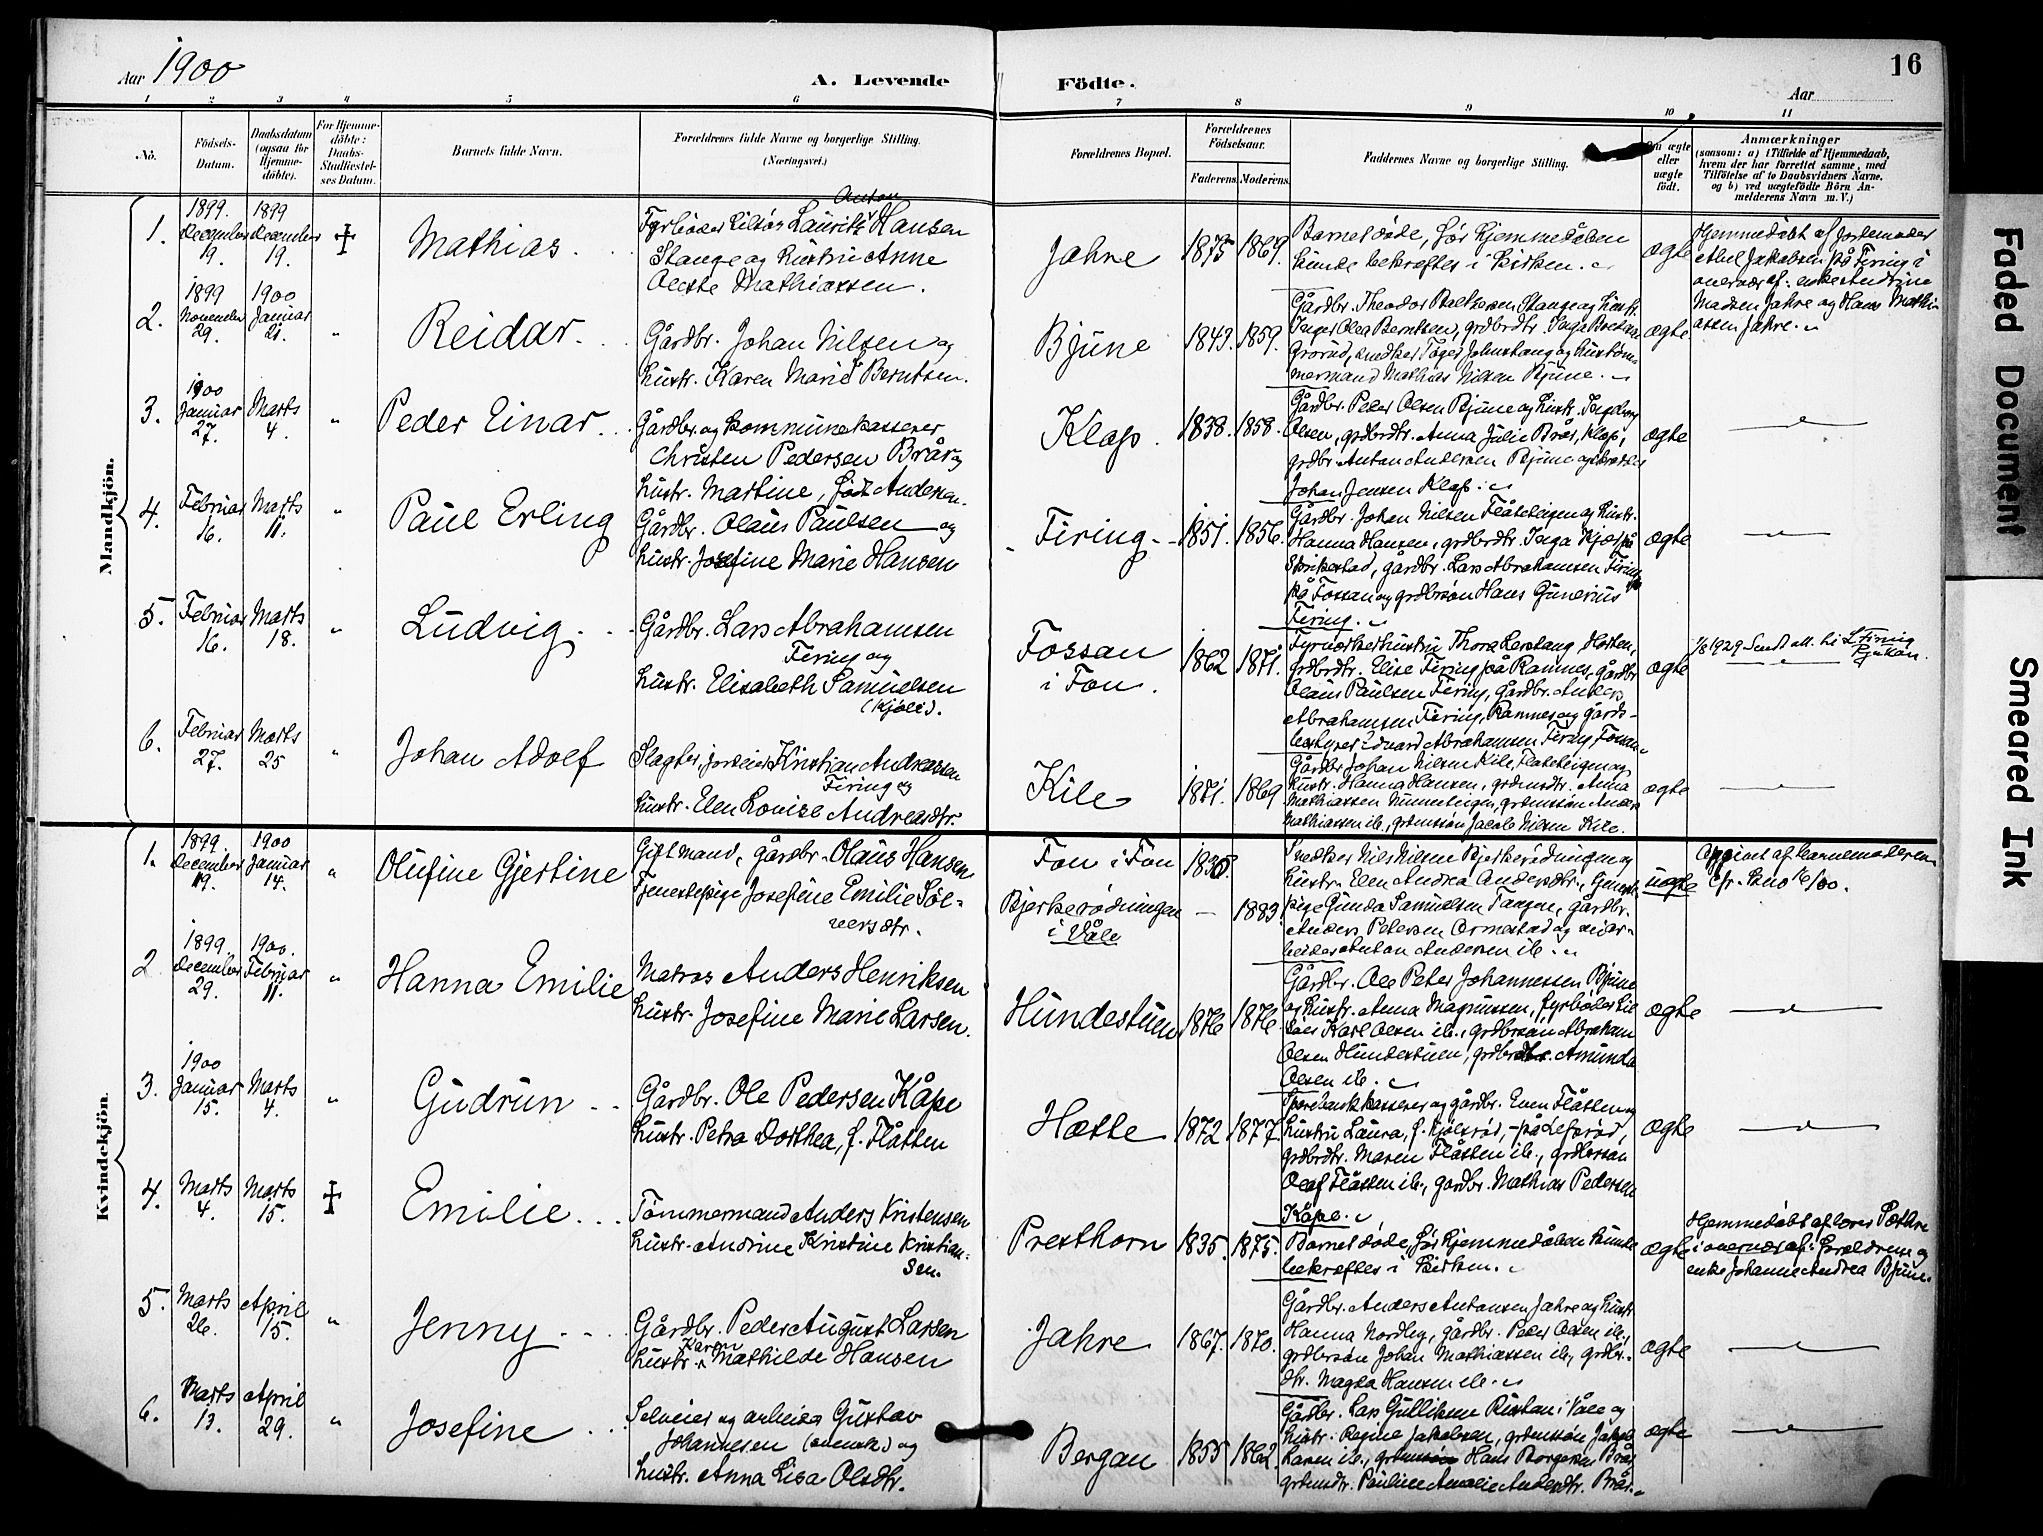 Aar 1900
A. Levende
Födte.
16
Aar
1 2 3 4 5 6 7 8 9 10 11
No.
Födsels-
Datum.
Daabsdatum
(ogsaa for
Hjemme-
döbte).
For Hjemme-
döbte:
Daabs-
Stadfæstel-
ses Datum.
Barnets fulde Navn.
Forældrenes fulde Navne og borgerlige Stilling.
(Næringsvei.)
Forældrenes Bopæl.
Forældrenes
Födselsaar.
Faderens. Moderens.
Faddernes Navne og borgerlige Stilling.
Om ægte
eller
uægte
födt.
Anmærkninger
(saasom: a) i Tilfælde af Hjemmedaab,
hvem der har forrettet samme, med
Tilföielse af to Daabsvidners Navne,
og b) ved uægtefödte Börn An-
melderens Navn m. V.)
Mandkjön.
1.
1899.
December
19.
1899
December
19.
Mathias
Anton
Fyrbøder Lauritz Hansen
Stange og hustru Anne
Mathiassen.
Jahre
1875 1869.
Barnet døde, før hjemmedåben
kunde bekræftes i kirken.
ægte
Hjemmedøbt af jordemoder
Jakobsen på Firing i
overvær af: enke Andrine
Madsen Jahre og Hans Mathi-
assen Jahre.
2.
1899
November
29.
1900
Januar
21.
"
Reidar
Gårdbr. Johan Nilsen og
hustr. Karen Marie Berntsen.
Bjüne
1849. 1859.
Gårdbr. Theodor Stange og hustr.
Olea Berntsen, grdbrdtr. Inga
Grorud, snedker og
mermand Mathias Nilsen Bjüne.
ægte
3.
1900
Januar
27.
Marts
4.
"
Peder Einar
Gårdbr. og kommunekasserer
Christen Pedersen Brår og
hustr. Martine, født Andersen.
Klop.
1838. 1858.
Gårdbr. Peder Olsen Bjüne og hustr. Ingeborg
Olsen, grdbrdtr. Anna Julie Brår, Klop,
grdbr. Anton Andersen Bjüne og
Johan Jensen Klop.
ægte
4.
Februar
16.
Marts
11.
"
Paul Erling
Gårdbr. Olaus Paulsen og
hustr. Josefine Marie Hansen
Firing
1851. 1856.
Gårdbr. Johan Nilsen Flåteteigen og hustr.
Hanna Hansen, grdbrdtr. Inga på
gårdbr. Lars Abrahamsen Firing
på Fossan og grdbrsøn Hans Gunerius
Firing.
ægte
5.
Februar
16.
Marts
18.
"
Ludvig
Gårdbr. Lars Abrahamsen
Firing og
hustr. Elisabeth Samuelsen
Fossan
i Fon.
1862 1871.
hustru Thora
grdbrdtr. Elise Firing på Ramnes, gårdbr.
Olaus Paulsen Firing, gårdbr. Anders
Abrahamsen Firing, Ramnes og gårds-
bestyrer Edvard Abrahamsen Firing, Fossan.
ægte
1929 Sendt att. til L. Firing
Rjukan.
6.
Februar
27.
Marts
25
"
Johan Adolf
Slagter, Kristian Andreassen
Firing og
hustr. Elen Lovise Andreasdtr.
Kile
1871. 1869
Gårdbr. Johan Nilsen Kile, Flåteteigen og
hustr. Hanna Hansen, Anna
Mathiassen
Mathiassen ib., Jacob Nilsen Kile.
ægte
Kvindekjön.
1.
1899.
December
19.
1900
Januar
14.
"
Olufine Gjertine
Gift mand, gårdbr. Olaus Hansen
Tjenestepige Josefine Emilie Søl-
versdtr.
Fon i Fon
Bjerkerødningen
i Våle
1830.
— 1883.
Snedker Nils Nilsen Bjerkerødningen og
hustr. Elen Andrea Andersdtr.,
pige Gunda Samuelsen Tangen, gårdbr.
Anders Petersen og
Anton Andersen ib.
uægte
Opgivet af barnemoderen
cfr. 16/00.
2
1899.
December
29.
1900.
Februar
11.
"
Hanna Emilie
Matros Anders Henriksen
hustr. Josefine Marie Larsen.
Hundestuen
1876 1876
Gårdbr. Ole Peter Johannessen Bjüne
og hustr. Anna Magnussen, fyrbøder
Karl Olsen ib., grdbrsøn Abraham
Olsen Hundestuen, grdbrdtr. Amunda
Olsen ib.
ægte
3.
1900
Januar
15.
Marts
4.
"
Gudrun
Gårdbr. Ole Pedersen Kåpe
hustr. Petra Dorthea, f. Flåtten
Hotte
1872 1877.
Sparebankkasserer og gårdbr. Even Flåtten og
hustru Laura, f. Kjølsrød, på Lefsrød,
grdbrdtr. Maren Flåtten ib., grdbrsøn
Olaf Flåtten ib., gårdbr. Mathias Pedersen
Kåpe.
ægte
4.
Marts
4.
Marts
15.
Emilie
Tømmermand Anders Kristensen
hustr. Andrine Kristine Kristian-
sen.
Presthorn
1835. 1875.
Barnet døde, før hjemmedåben kunde
bekræftes i kirken.
ægte
Hjemmedøbt af
i overvær af: forældrene og
enke Johanne Andrea Bjüne.
5.
Marts
26.
April
15.
"
Jenny
Gårdbr. Peder August Larsen
Karen
hustr. Mathilde Hansen
Jahre
1867. 1870.
Gårdbr. Anders Antonsen Jahre og hustr.
Hanna Nordby, gårdbr. Peter Olsen ib.,
grdbrsøn Johan Mathiassen ib., grdbr.-
dtr. Magda Hansen ib.
ægte
6.
Marts
13.
April
29.
"
Josefine
Selveier og arbeider Gustav
Johannesen (svensk) og
hustr. Anna Lisa Olsdtr.
Bergan
1855 1862.
Gårdbr. Lars Gulliksen i Våle og
hustr. Regine Jakobsen, Jakob
Larsen ib., Hans Borgersen Brår,
Pauline Amalie Andersdtr. Brår.
ægte
Faded Document
Smeared Ink